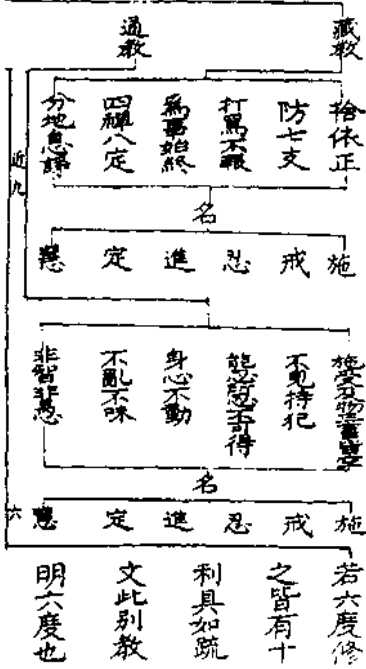 藏教
捨依正
防七支
打罵不報
為事始終
四禪八定
分地息諍
名
施
戒
忍
進
定
慧
通教
施受財物三事皆空
不見持犯
能忍所忍不可得
身心不動
不亂不味
非智非愚
名
施
戒
忍
進
定
慧
近九
六
若六度修
之皆有十
利具如疏
文此別教
明六度也